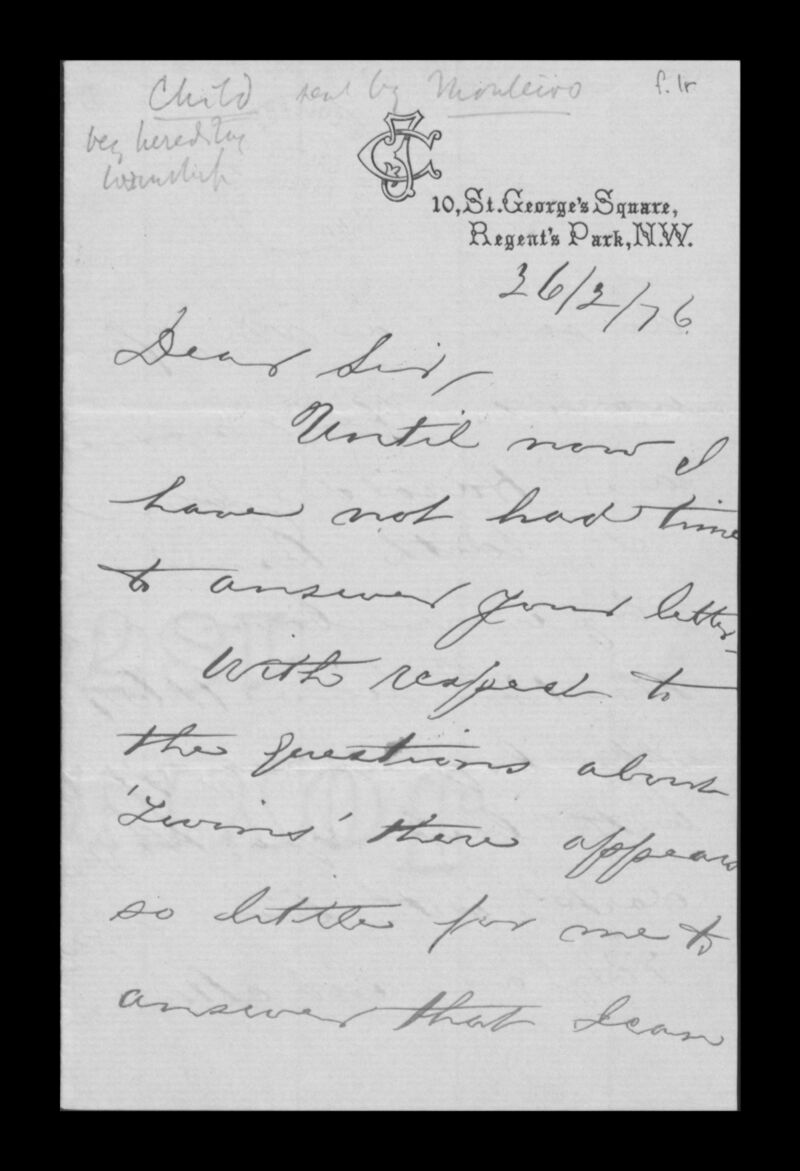 Child sent by Monteiro
f. 1r
beg heredity
10, St. George's Square,
Regent's Park, N.W.
26/2/76
Dear Sir,
Until now I
have not had time
to answer your letter.
With respect to
the questions about
'Twins' there appears
so little for me to
answer that I can